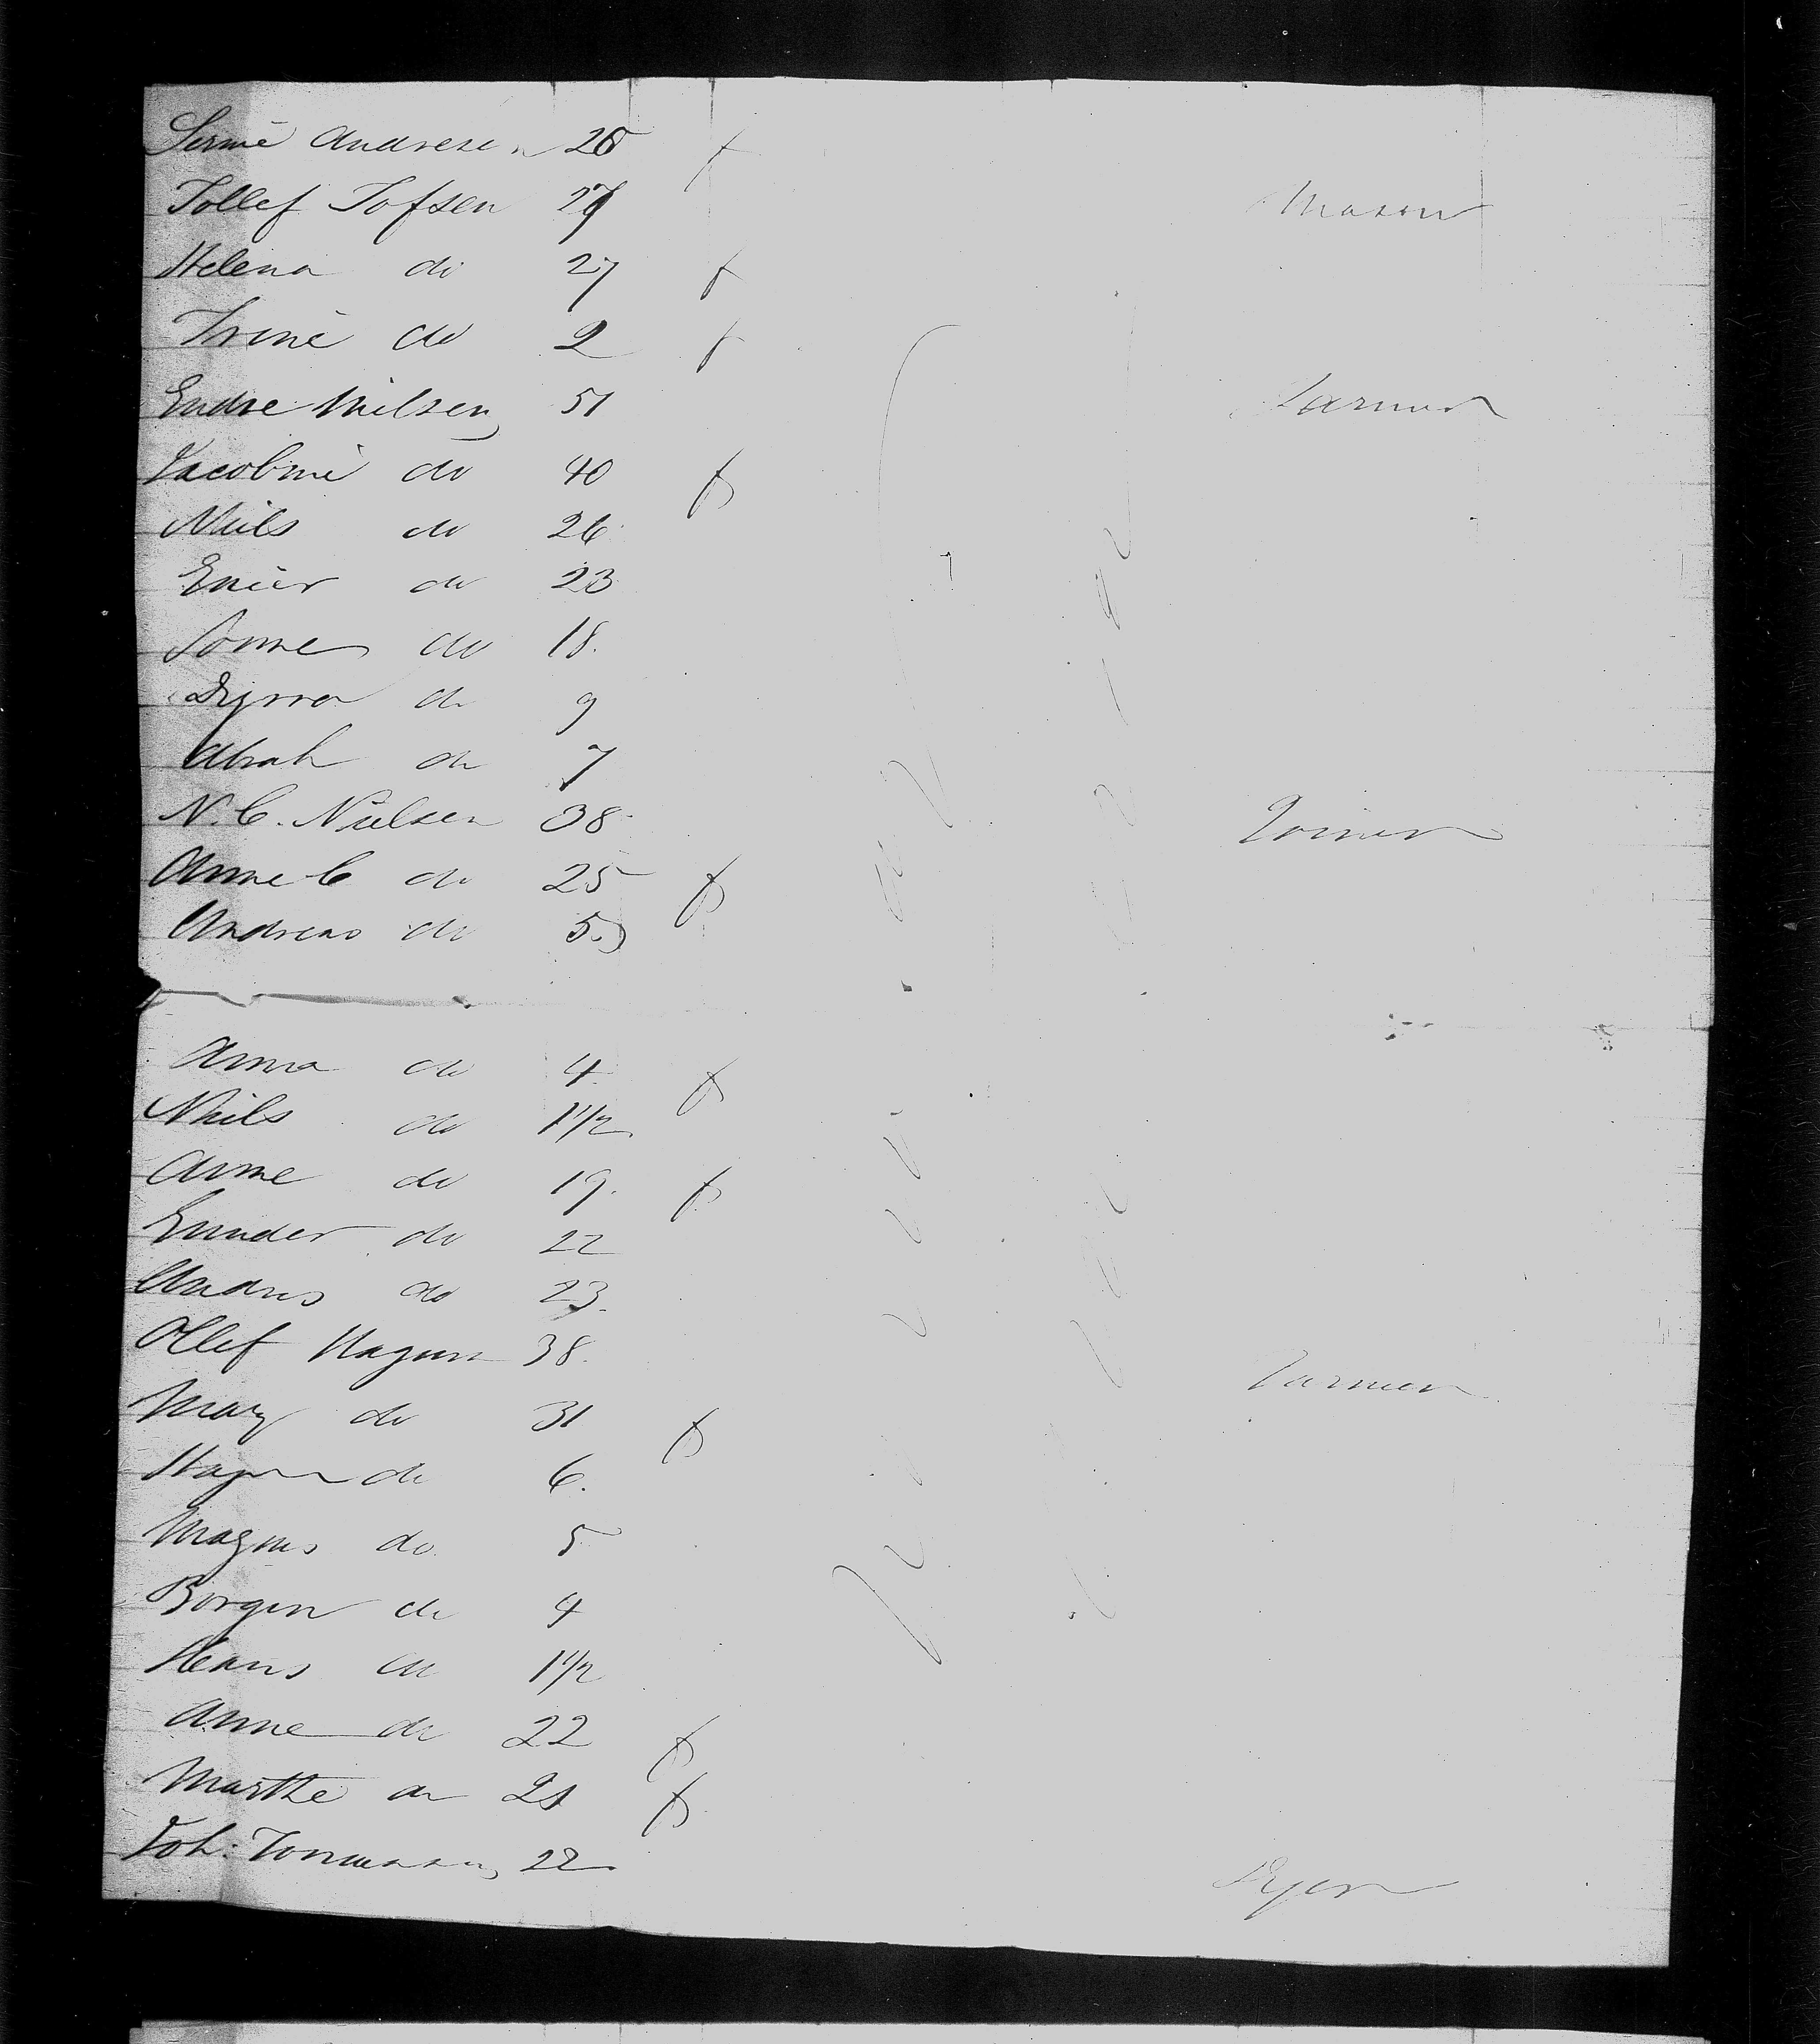 Andresen 26 f
Tollef Tofsen 29 Mason
Helena do 27 f
Trine do 2 f
Endre Nielsen 51 Farmer
Jacobine do 40 f
Niels do 26
do 23
do 18.
do 9
Abrah do 7
N. C. Nielsen 38 Joiner
Anne C do 25 f
Andreas do 5
Anna do 4 f
Niels do 1 1/2
Anne do 19. f
Gunder do 22
Andres do 23.
Ollef Hagen 38. Farmer
Mary do 31 f
Hagen do 6.
Magnus do 5
Borgen do 4
Hans do 1 1/2
Anne do 22 f
Marthe do 21 f
Joh: 22 Dyer